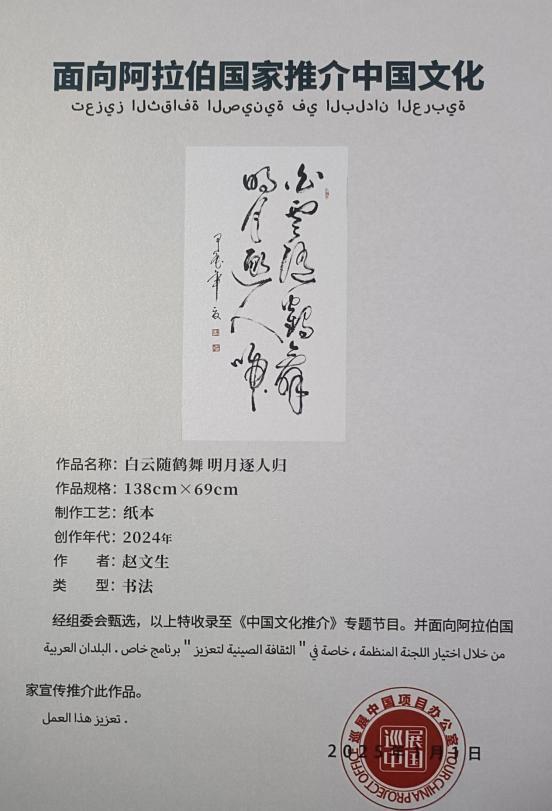 面向阿拉伯国家推介中国文化
تعزيز الثقافة الصينية في البلدان العربية
白雲隨鶴舞
明月逐人歸
甲辰年夏
作品名称：白云随鹤舞 明月逐人归
作品规格：138cm×69cm
制作工艺：纸本
创作年代：2024年
作　　者：赵文生
类　　型：书法
经组委会甄选，以上特收录至《中国文化推介》专题节目。并面向阿拉伯国
من خلال اختيار اللجنة المنظمة ، خاصة في " الثقافة الصينية لتعزيز " برنامج خاص . البلدان العربية
家宣传推介此作品。
. تعزيز هذا العمل
巡展中国项目办公室
巡展
中国
TOUR CHINA PROJECT OFFICE
2025年1月1日